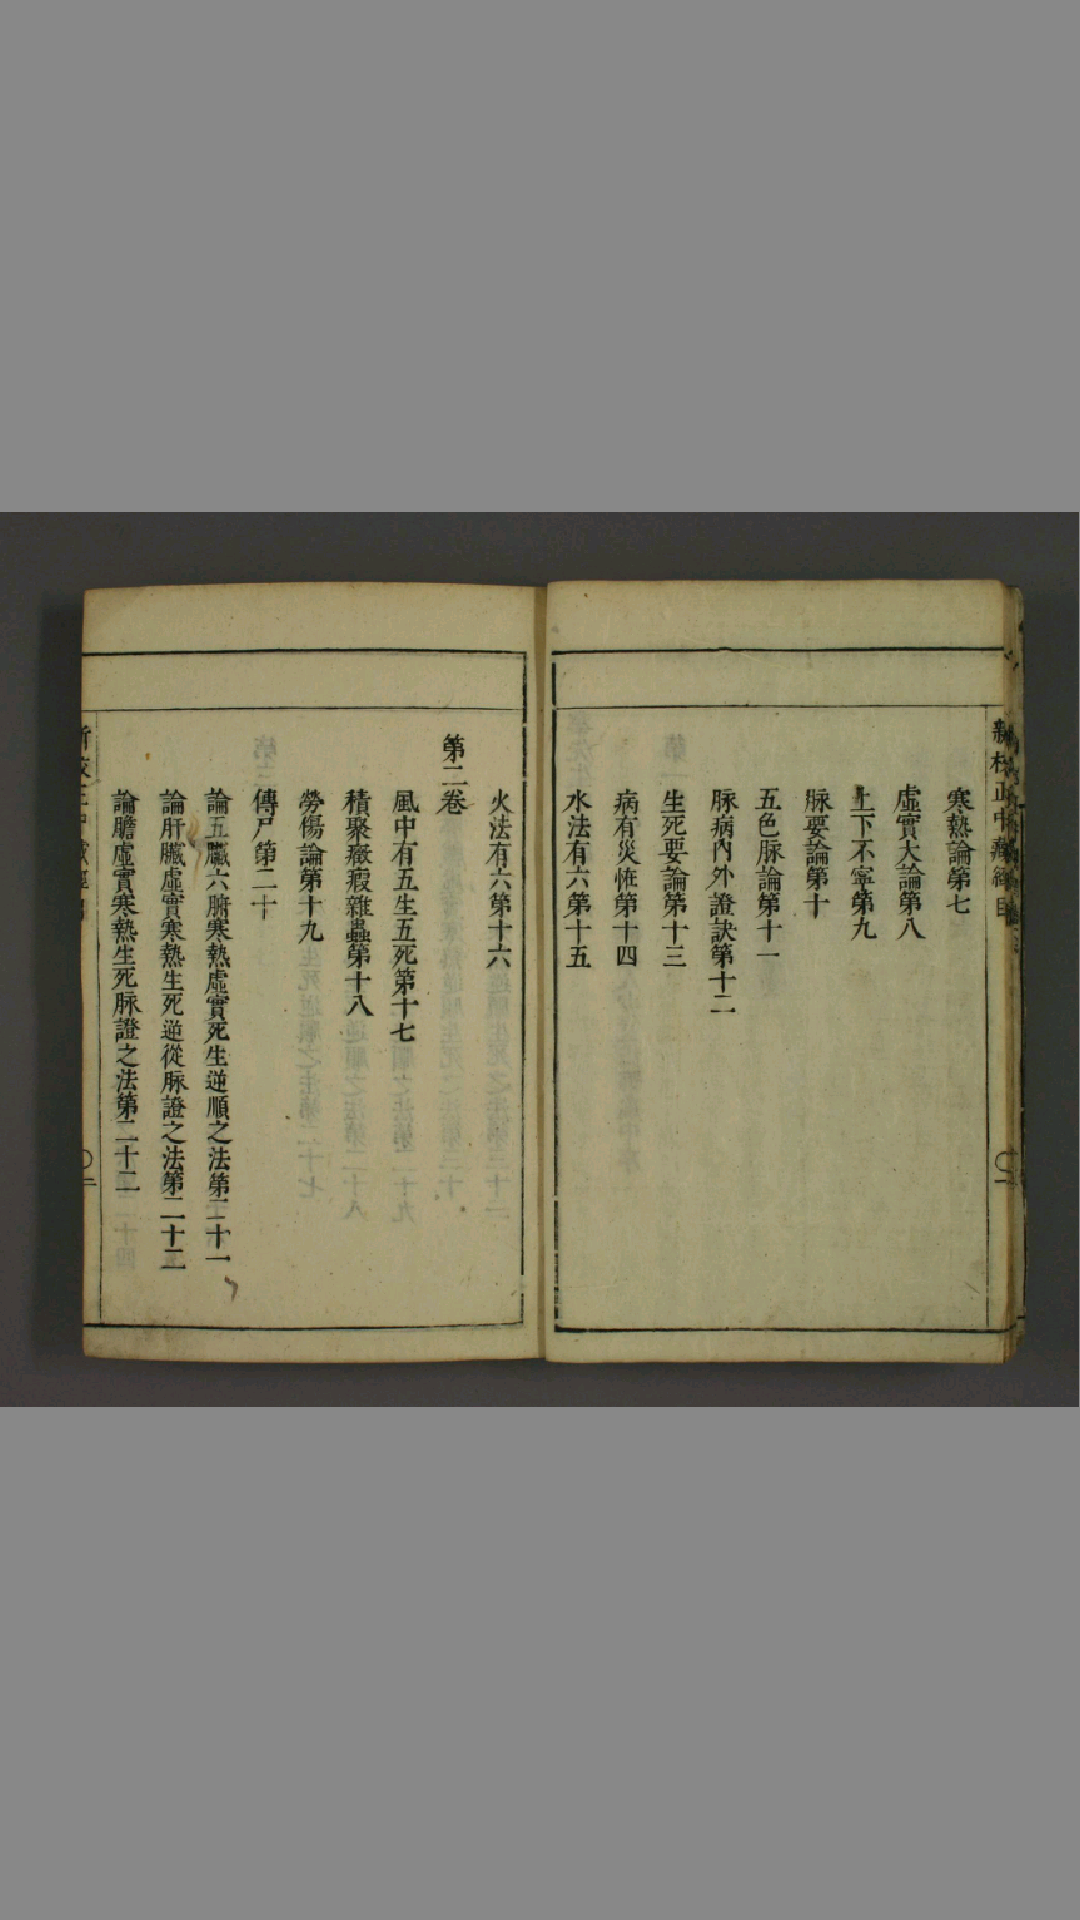 新校正中藏經目
寒熱論第七
虛實大論第八
上下不寧第九
脉要論第十
五色脉論第十一
脉病內外證訣第十二
生死要論第十三
病有災恠第十四
水法有六第十五
火法有六第十六
第二卷
風中有五生五死第十七
積聚癥瘕雜蟲第十八
勞傷論第十九
傳尸第二十
論五臟六腑寒熱虛實死生逆順之法第二十一
論肝臟虛實寒熱生死逆從脉證之法第二十二
論膽虛實寒熱生死脉證之法第二十三